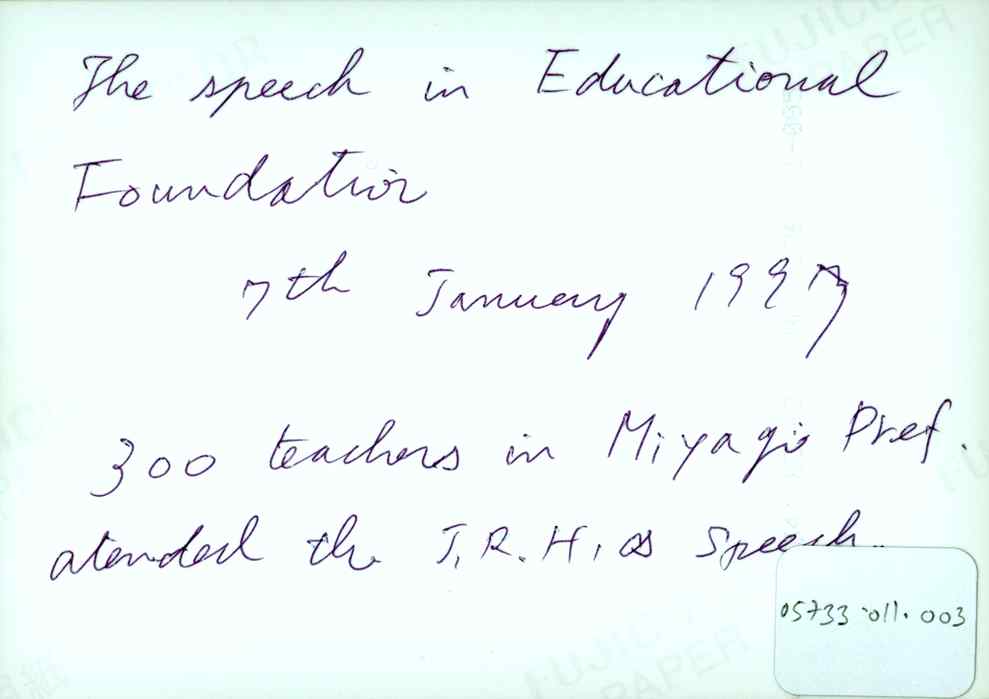 The speech in Educational
Foundation
7th January 1997
300 teachers in Miyagi Pref.
atended the J.R.H,s Speech.
05733-011.003
FUJICOLOR
PAPER
FUJICOLOR
PAPER